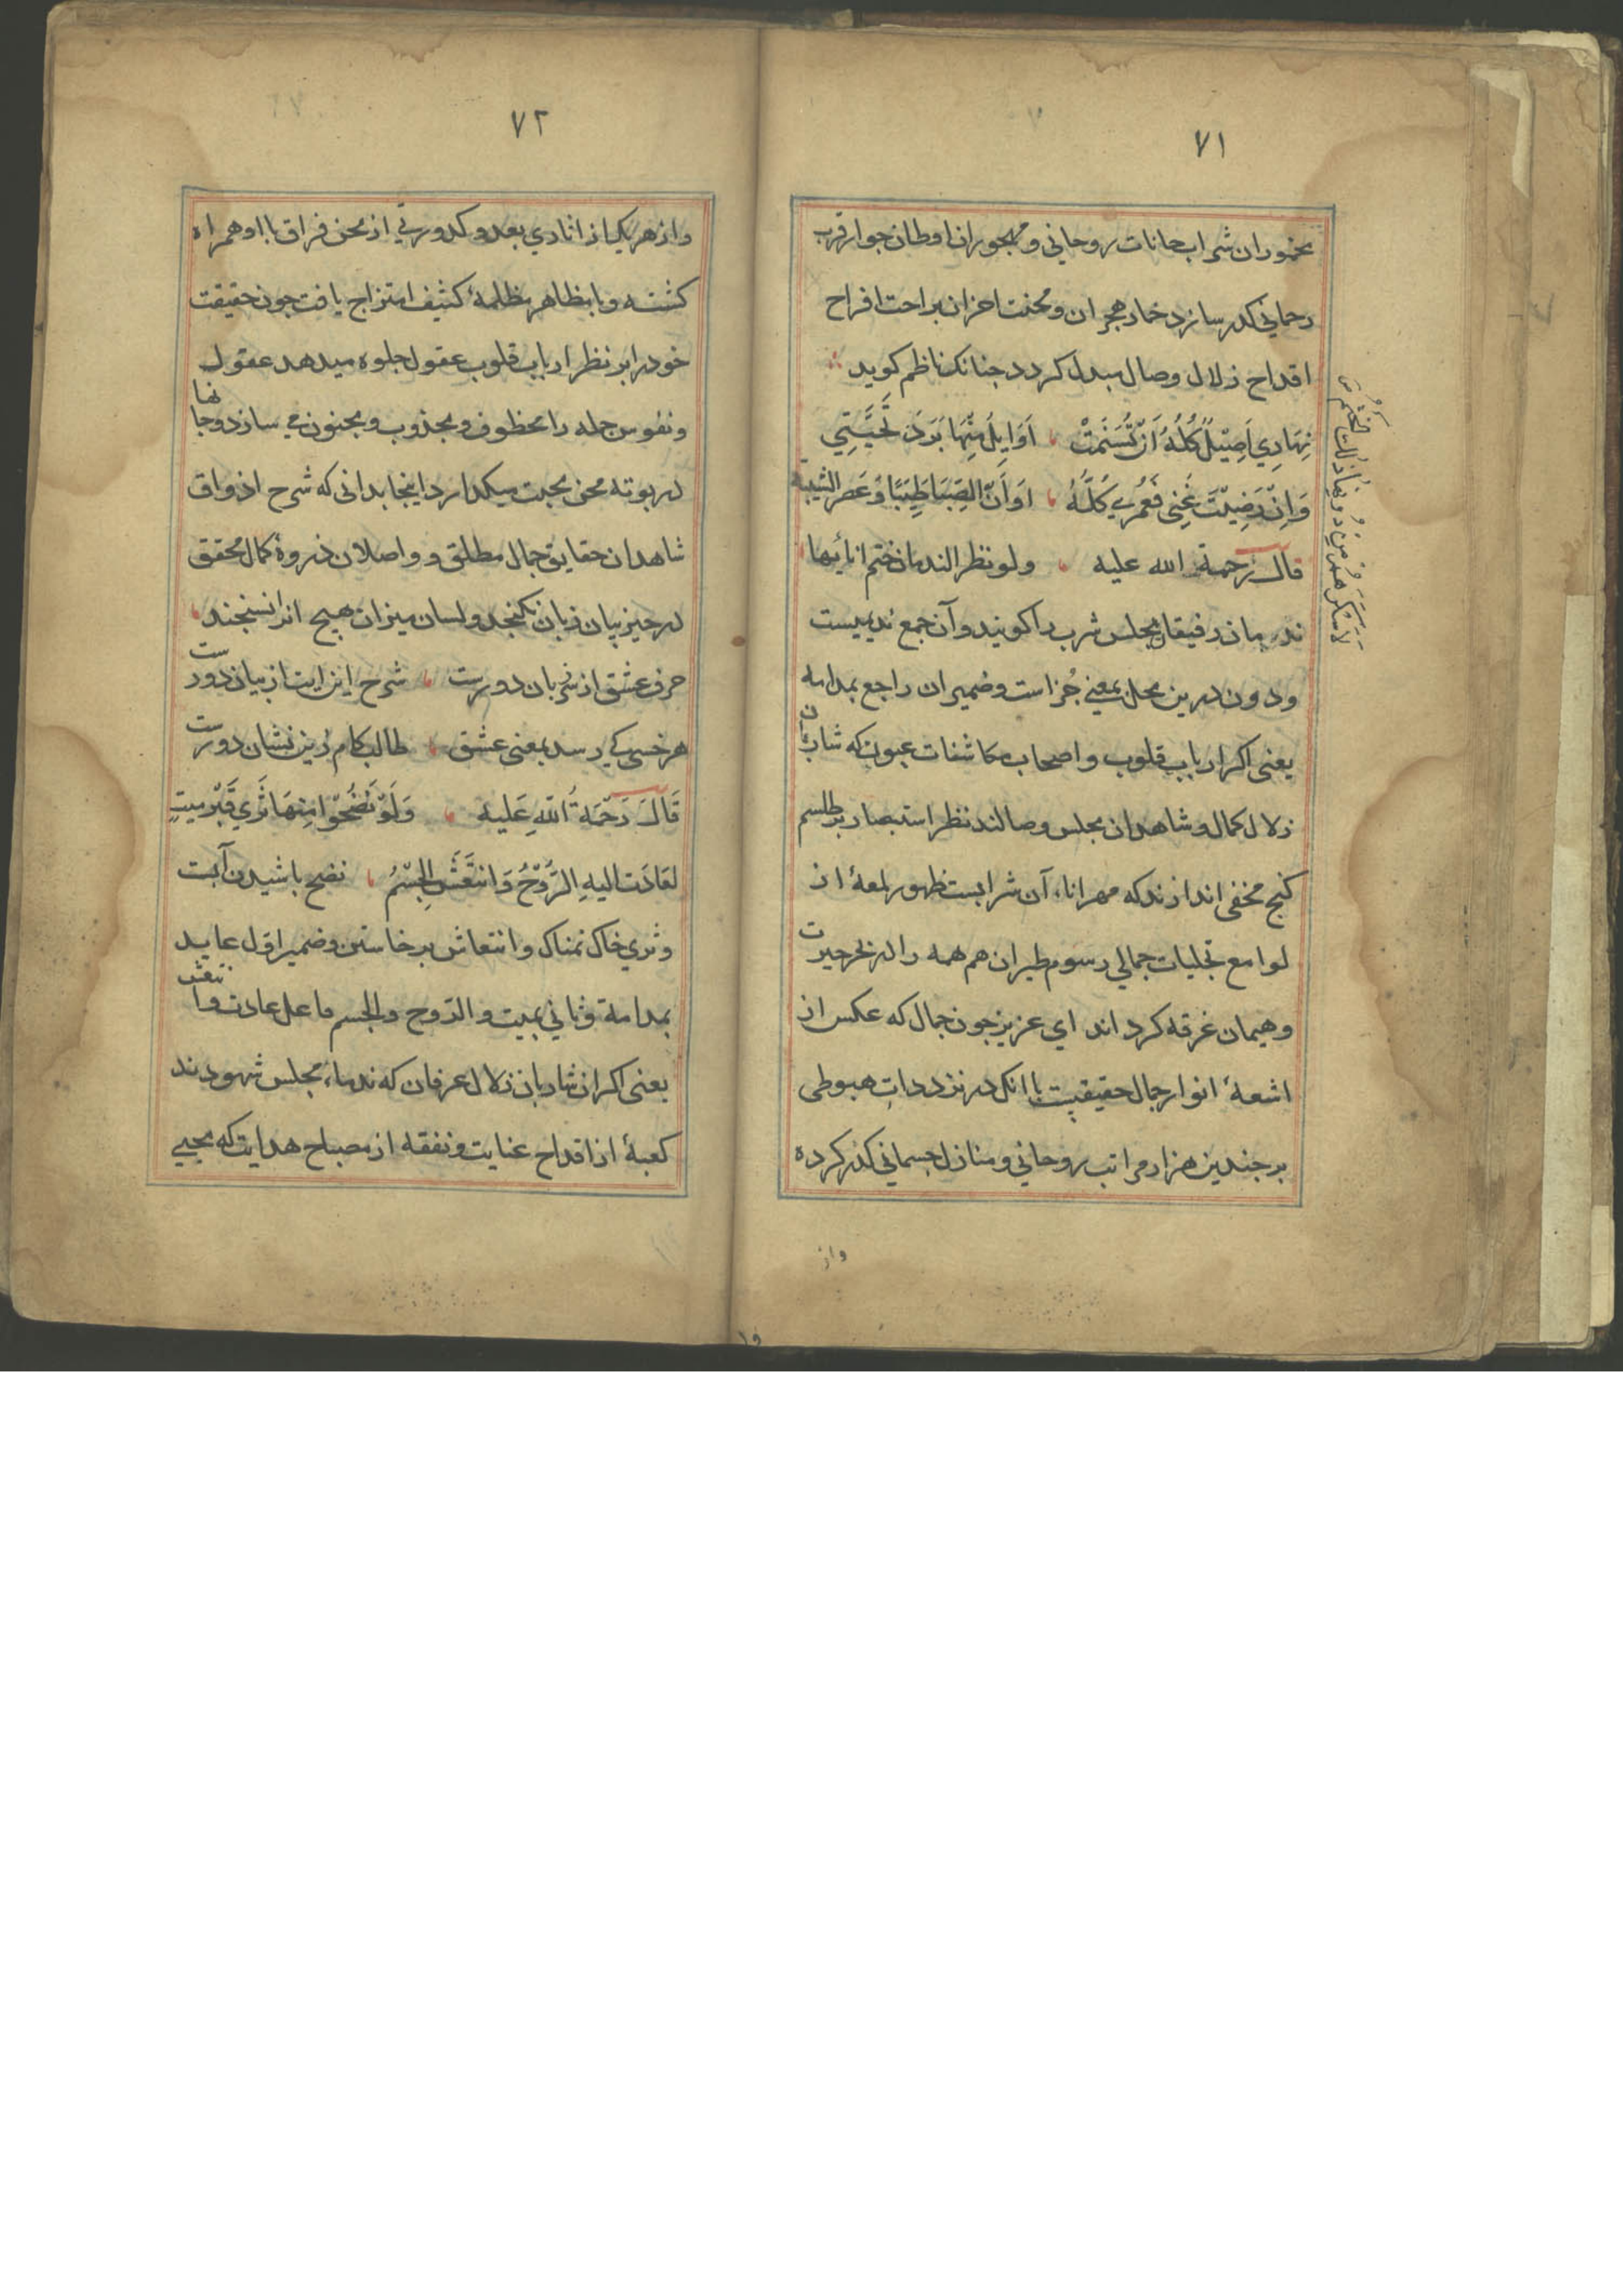 ٧١
مخموران شراب حانات روحاني و مهجوران اوطان جوار قرب
رحماني كذر سازد خمار هجران و محنت احزان براحت افراح
اقداح زلال وصال مبدل كردد جنانك ناظم كويد
نهاري اصيل كله ان تنسمت اوايل منها برد تحيتي
وان رضيت عني فعمري كله اوان الصبا طيبا وعصر الشيبة
قال رحمة الله عليه ولو نظر الندمان ختم انائها
لاسكرهم من دونها ذلك الختم
ندمان رفيقان مجلس شرب را كويند و آن جمع نديمست
ودون درين محل بمعني جز است و ضمير ان راجع بمدامه
يعنى اكر ارباب قلوب و اصحاب مكاشفات عيون كه شاربان
زلال كمال و شاهدان مجلس وصالند نظر استبصار بر طلسم
كنج مخفى اندازند كه مهر اناء آن شرابست ظهور لمعۀ از
لوامع تجليات جمالي رسوم طيران هم همه را در بحر حيرت
و هيمان غرقه كرد اند اي عزيز جون جمال كه عكس از
اشعۀ انوار جمال حقيقيت با انك در نزد دات هبوطى
بر جندين هزار مراتب روحاني و منازل جسماني كذر كرده
واز
٧٢
واز هر يك از انادي بعد و كدورتي از محن فراق با او همراه
كشته و با مظاهر مظلمۀ كثيف امتزاج يافت جون حقيقت
خود را بر نظر ارباب قلوب عقول جلوه ميدهد عقول
و نفوس جمله را مخطوف و مجذوب و مجنون مي سازد و جانها
در بوته محن محبت ميكدازد اينجا بدانى كه شرح اذواق
شاهدان حقايق جمال مطلق و واصلان ذروۀ كمال محقق
در حيز بيان زبان نكنجد و لسان ميزان هيج انرا نسنجند
حرف عشق از سر زبان دورست شرح اين ايت از بيان دورست
هر خسى كي رسد بمعنى عشق طالب كام زين نشان دورست
قال رحمة الله عليه ولو نضحوا منها ثري قبر ميت
لعادت اليه الروح وانتعش الجسم نضح باشيدن آبت
وثري خاك نمناك و انتعاش برخاستن و ضمير اول عايد
بمدامة و ثاني بميت و الروح والجسم فاعل عادت وانتعش
يعنى اكر ان شاربان زلال عرفان كه ندماء مجلس شهودند
كعبۀ از اقداح عنايت و نفقه از مصباح هدايت كه محيي